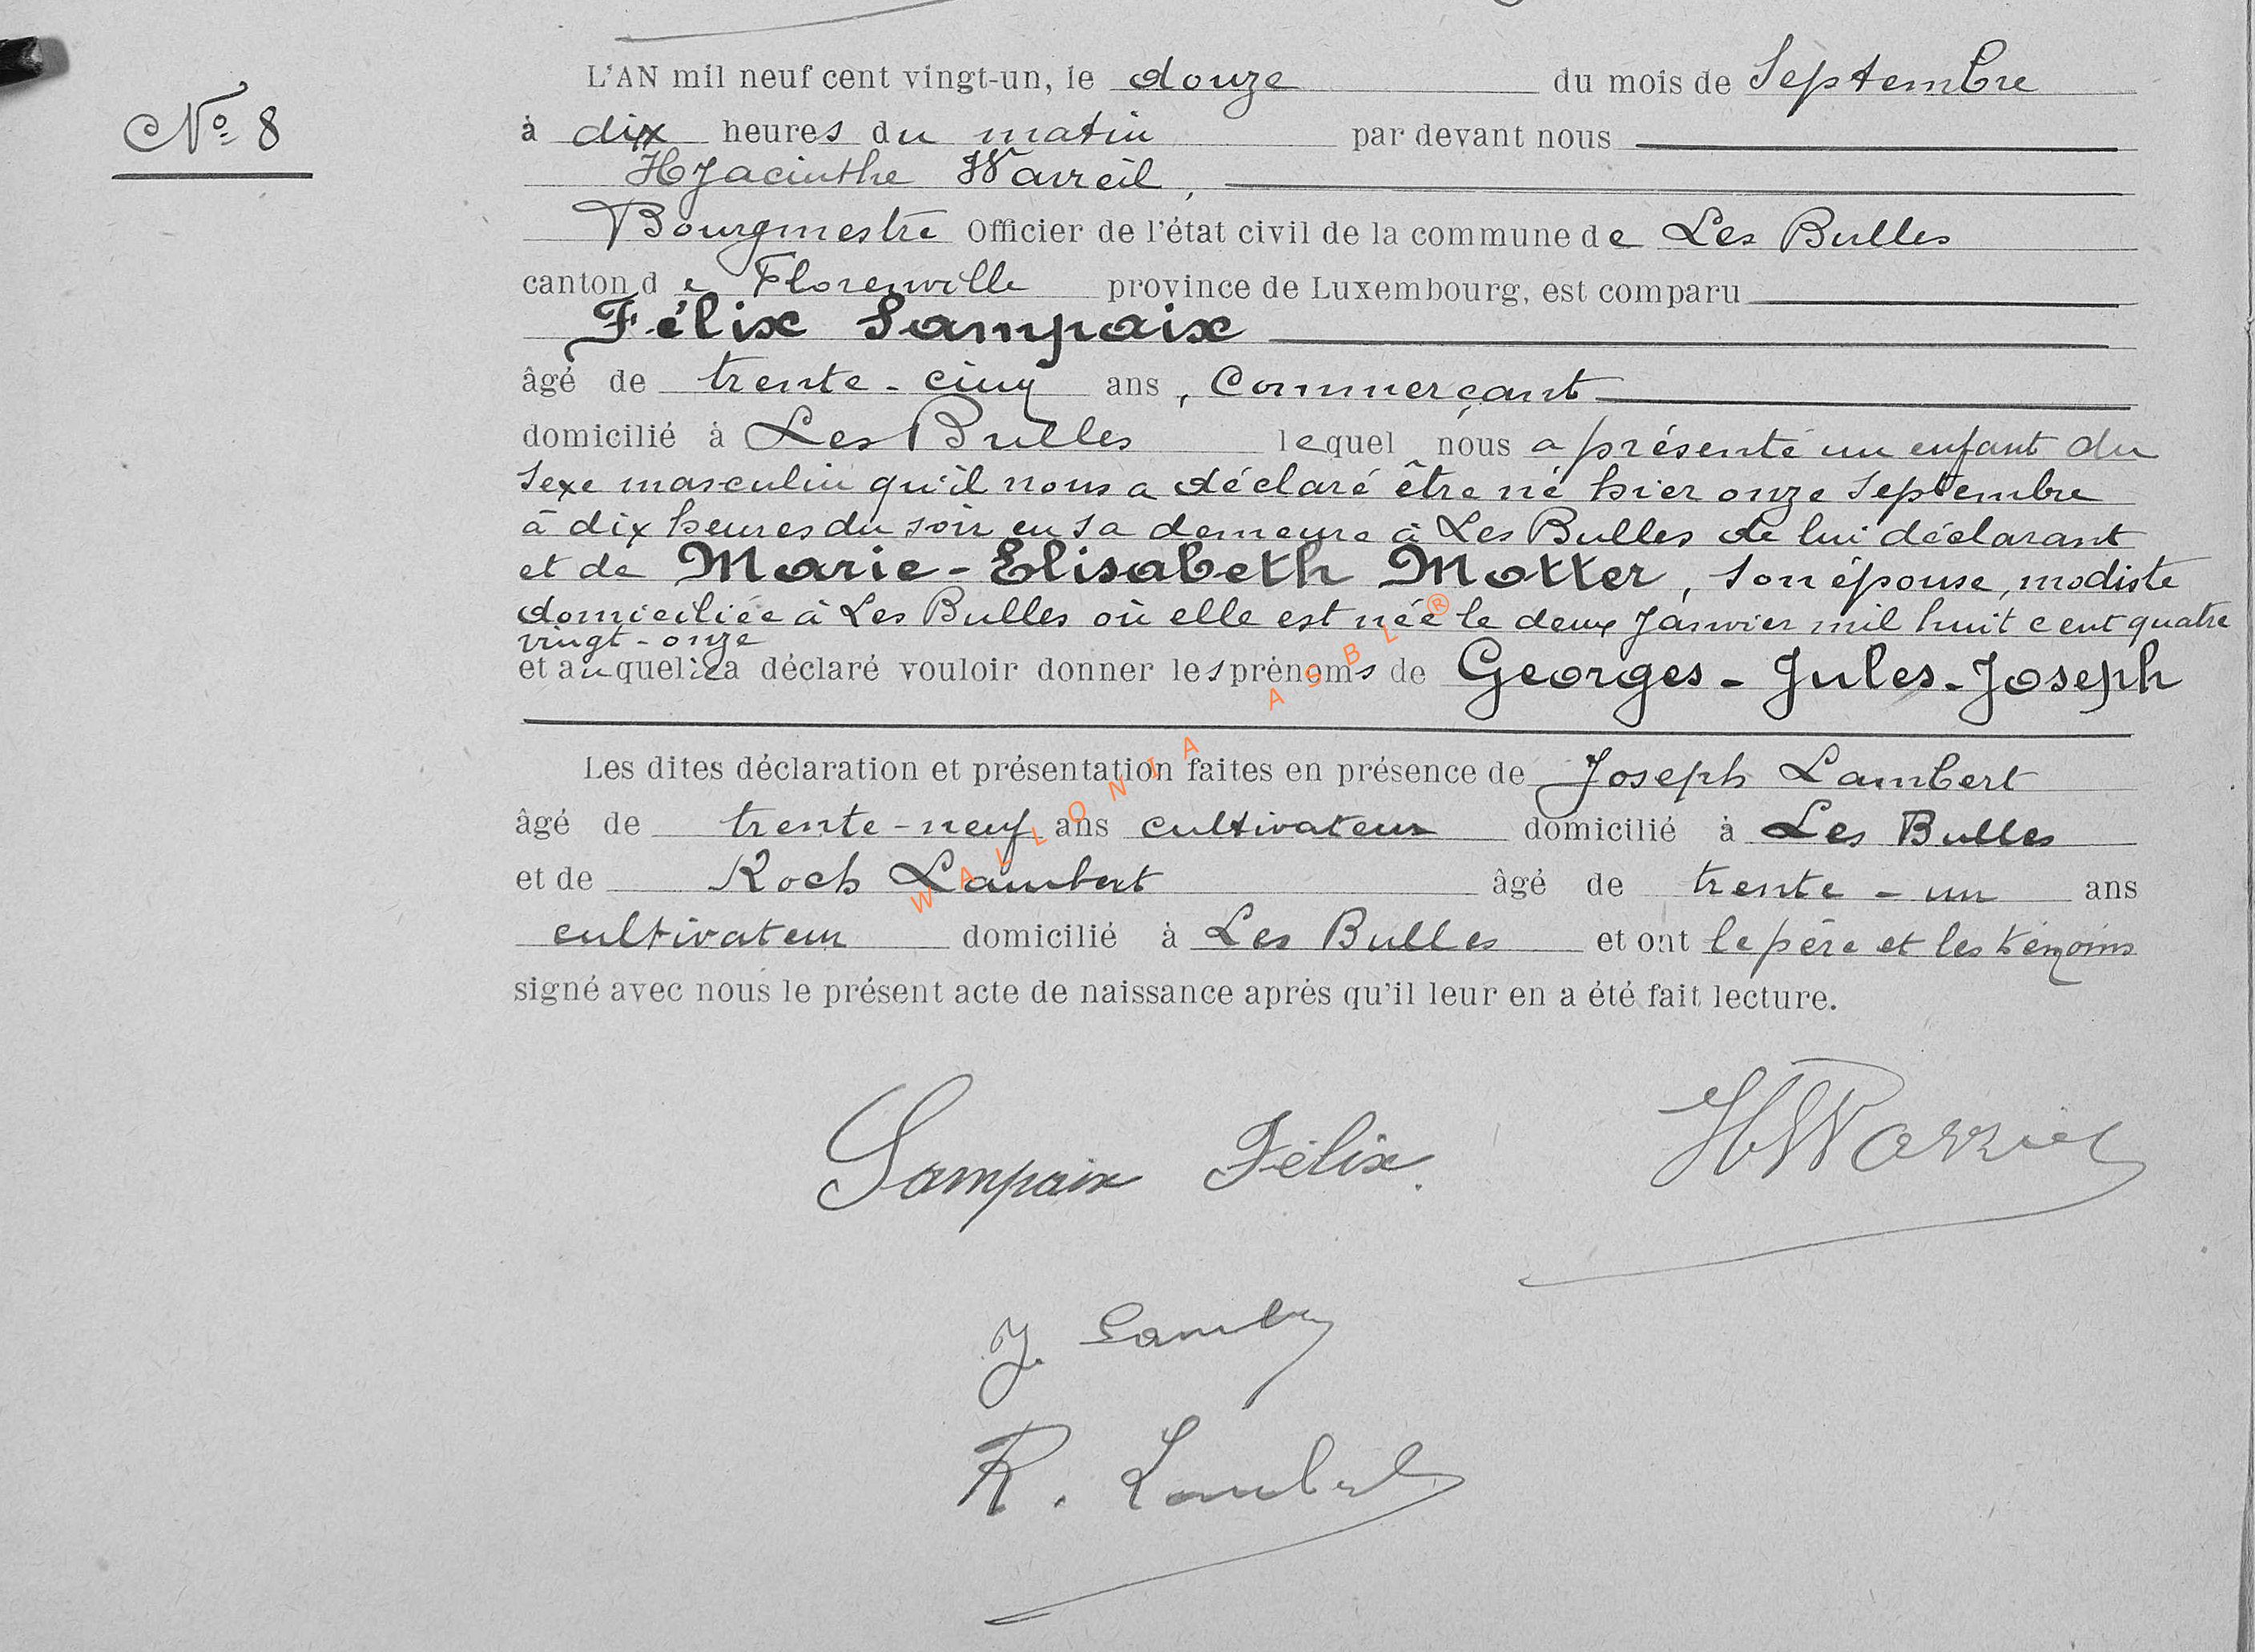 L'AN mil neuf cent vingt-un, le douze du mois de Septembre
N° 8
à dix heures du matin par devant nous
Hyacinthe Warzeil,
Bourgmestre Officier de l'état civil de la commune de Les Bulles
canton de Florenville province de Luxembourg, est comparu
Félix Sampaix
âgé de trente-cinq ans, Commerçant
domicilié à Les Bulles lequel nous a présenté un enfant du
sexe masculin qu'il nous a déclaré être né hier onze Septembre
à dix heures du soir en sa demeure à Les Bulles de lui déclarant
et de Marie-Elisabeth Motter, son épouse, modiste
domiciliée à Les Bulles où elle est née le deux Janvier mil huit cent quatre
vingt-onze
et auquel il a déclaré vouloir donner les prénoms de Georges-Jules-Joseph
Les dites déclaration et présentation faites en présence de Joseph Lambert
âgé de trente-neuf ans cultivateur domicilié à Les Bulles
et de Roch Lambert âgé de trente-un ans
cultivateur domicilié à Les Bulles et ont le père et les témoins
signé avec nous le présent acte de naissance après qu'il leur en a été fait lecture.
WALLONIA ASBL ®
Sampaix Félix.
J. Lambert
R. Lambert